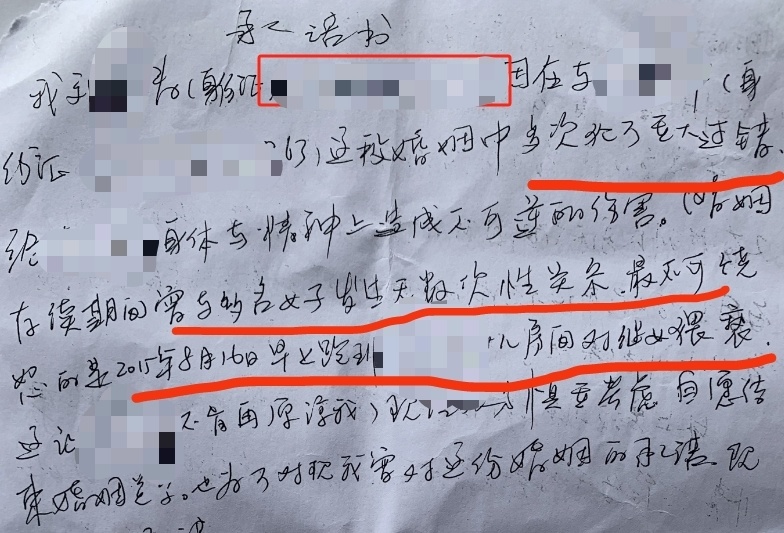 承诺书
我 (身份证 因在与 (身
份证 )这段婚姻中多次犯了重大过错.
给 身体与精神上造成不可逆的伤害。(婚姻
存续期间曾与多名女子发生无数次性关系.最不可饶
恕的是2015年8月16日早上跑到 房间对继女猥亵.
这让 不肯再原谅我) 现 慎重考虑自愿结
束婚姻关系.也为了对我曾对这份婚姻的承诺.现